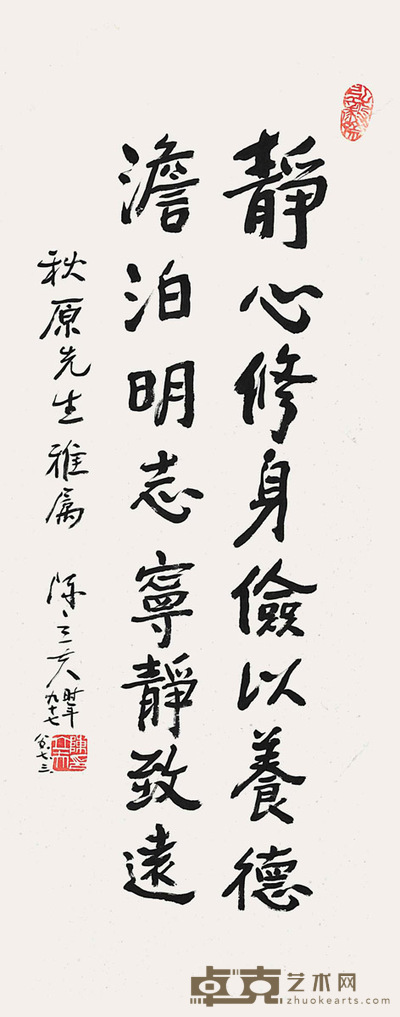 靜心修身儉以養德
澹泊明志寧靜致遠
秋原先生雅屬 陳立夫 時年九十七
卓克艺术网
zhuokearts.com